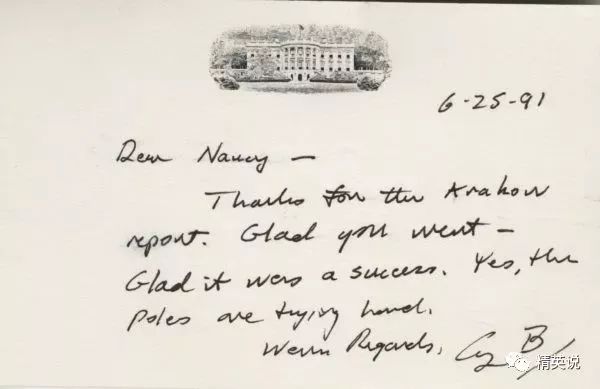 6-25-91
Dear Nancy —
Thanks for the Krakow
report. Glad you went —
Glad it was a success. Yes, the
Poles are trying hard.
Warm Regards, GB
精英说